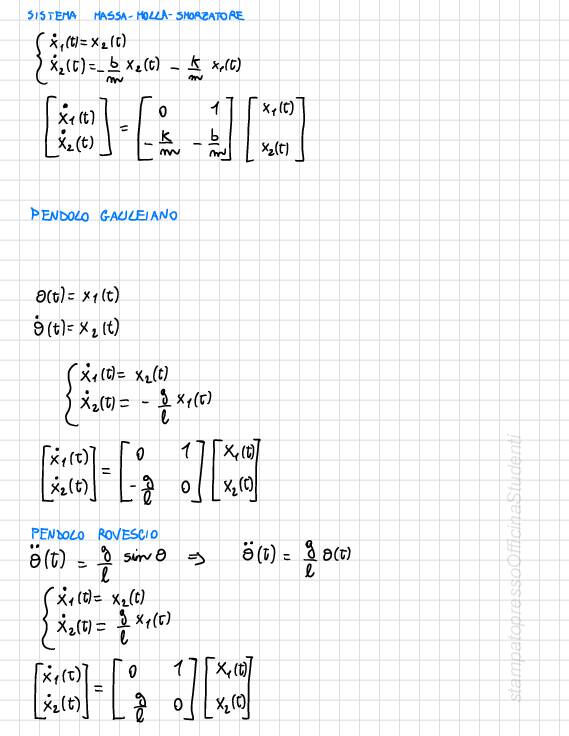 SISTEMA MASSA-MOLLA-SMORZATORE
{ ẋ₁(t) = x₂(t)
ẋ₂(t) = -b/m x₂(t) - k/m x₁(t)
[ẋ₁(t) ẋ₂(t)] = [0 1 -k/m -b/m] [x₁(t) x₂(t)]
PENDOLO GALILEIANO
θ(t) = x₁(t)
θ̇(t) = x₂(t)
{ ẋ₁(t) = x₂(t)
ẋ₂(t) = - g/l x₁(t)
[ẋ₁(t) ẋ₂(t)] = [0 1 -g/l 0] [x₁(t) x₂(t)]
PENDOLO ROVESCIO
θ̈(t) = g/l sin θ ⇒ θ̈(t) = g/l θ(t)
{ ẋ₁(t) = x₂(t)
ẋ₂(t) = g/l x₁(t)
[ẋ₁(t) ẋ₂(t)] = [0 1 g/l 0] [x₁(t) x₂(t)]
stampatopressoOfficinaStudenti